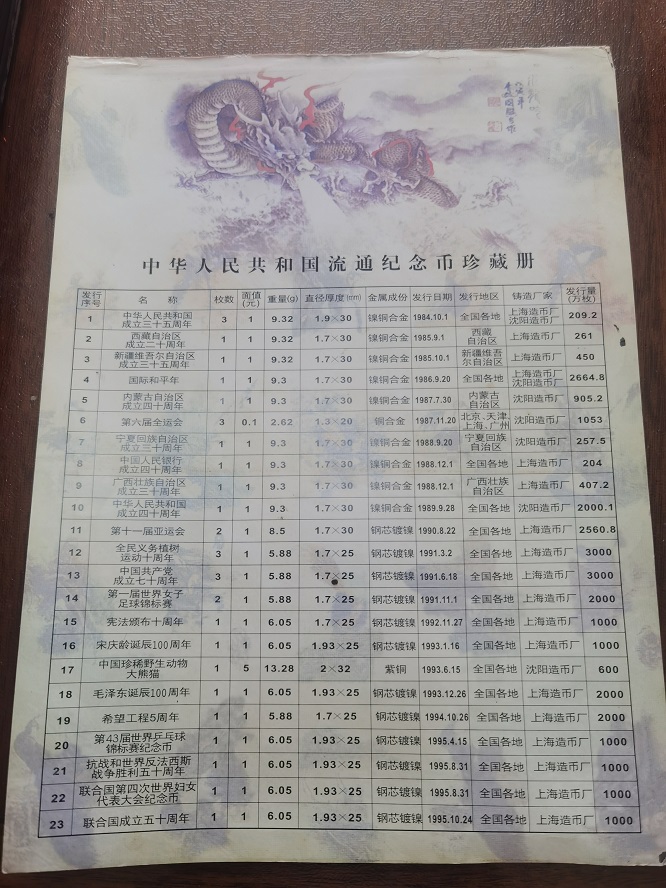 中华人民共和国流通纪念币珍藏册
发行序号 名 称 枚数 面值(元) 重量(g) 直径厚度(mm) 金属成份 发行日期 发行地区 铸造厂家 发行量(万枚)
1 中华人民共和国成立三十五周年 3 1 9.32 1.9×30 镍铜合金 1984.10.1 全国各地 上海造币厂 沈阳造币厂 209.2
2 西藏自治区成立二十周年 1 1 9.32 1.7×30 镍铜合金 1985.9.1 西藏自治区 上海造币厂 261
3 新疆维吾尔自治区成立三十五周年 1 1 9.32 1.7×30 镍铜合金 1985.10.1 新疆维吾尔自治区 上海造币厂 450
4 国际和平年 1 1 9.3 1.7×30 镍铜合金 1986.9.20 全国各地 上海造币厂 沈阳造币厂 2664.8
5 内蒙古自治区成立四十周年 1 1 9.3 1.7×30 镍铜合金 1987.7.30 内蒙古自治区 沈阳造币厂 905.2
6 第六届全运会 3 0.1 2.62 1.3×20 铜合金 1987.11.20 北京、天津 上海、广州 沈阳造币厂 1053
7 宁夏回族自治区成立三十周年 1 1 9.3 1.7×30 镍铜合金 1988.9.20 宁夏回族自治区 沈阳造币厂 257.5
8 中国人民银行成立四十周年 1 1 9.3 1.7×30 镍铜合金 1988.12.1 全国各地 上海造币厂 204
9 广西壮族自治区成立三十周年 1 1 9.3 1.7×30 镍铜合金 1988.12.1 广西壮族自治区 上海造币厂 407.2
10 中华人民共和国成立四十周年 1 1 9.3 1.7×30 镍铜合金 1989.9.28 全国各地 沈阳造币厂 2000.1
11 第十一届亚运会 2 1 8.5 1.7×30 钢芯镀镍 1990.8.22 全国各地 上海造币厂 2560.8
12 全民义务植树运动十周年 3 1 5.88 1.7×25 钢芯镀镍 1991.3.2 全国各地 上海造币厂 3000
13 中国共产党成立七十周年 3 1 5.88 1.7×25 钢芯镀镍 1991.6.18 全国各地 上海造币厂 3000
14 第一届世界女子足球锦标赛 2 1 5.88 1.7×25 钢芯镀镍 1991.11.1 全国各地 上海造币厂 2000
15 宪法颁布十周年 1 1 6.05 1.7×25 钢芯镀镍 1992.11.27 全国各地 上海造币厂 1000
16 宋庆龄诞辰100周年 1 1 6.05 1.93×25 钢芯镀镍 1993.1.16 全国各地 上海造币厂 1000
17 中国珍稀野生动物大熊猫 1 5 13.28 2×32 紫铜 1993.6.15 全国各地 沈阳造币厂 600
18 毛泽东诞辰100周年 1 1 6.05 1.93×25 钢芯镀镍 1993.12.26 全国各地 上海造币厂 2000
19 希望工程5周年 1 1 5.88 1.7×25 钢芯镀镍 1994.10.26 全国各地 上海造币厂 2000
20 第43届世界乒乓球锦标赛纪念币 1 1 6.05 1.93×25 钢芯镀镍 1995.4.15 全国各地 上海造币厂 1000
21 抗战和世界反法西斯战争胜利五十周年 1 1 6.05 1.93×25 钢芯镀镍 1995.8.31 全国各地 上海造币厂 1000
22 联合国第四次世界妇女代表大会纪念币 1 1 6.05 1.93×25 钢芯镀镍 1995.8.31 全国各地 上海造币厂 1000
23 联合国成立五十周年 1 1 6.05 1.93×25 钢芯镀镍 1995.10.24 全国各地 上海造币厂 1000